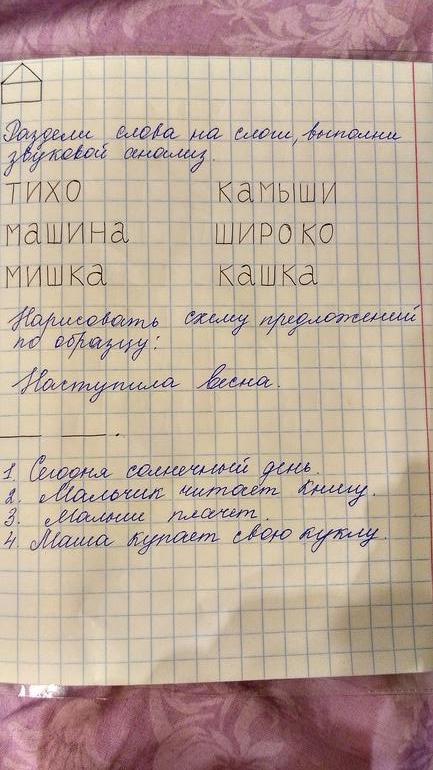 Раздели слова на слоги, выполни
звуковой анализ.
ТИХО КАМЫШИ
МАШИНА ШИРОКО
МИШКА КАШКА
Нарисовать схему предложений
по образцу:
Наступила весна.
1. Сегодня солнечный день.
2. Мальчик читает книгу.
3. Малыш плачет.
4. Маша купает свою куклу.